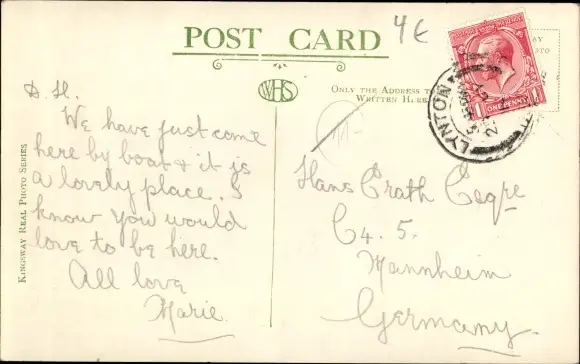 POST CARD
4€
WHS
ONLY THE ADDRESS TO
WRITTEN HERE
ONE PENNY
LYNTON
KINGSWAY REAL PHOTO SERIES
D H.
We have just come
here by boat & it is
a lovely place. I
know you would
love to be here.
All love
Marie.
Hans Erath
C4. 5.
Mannheim
Germany